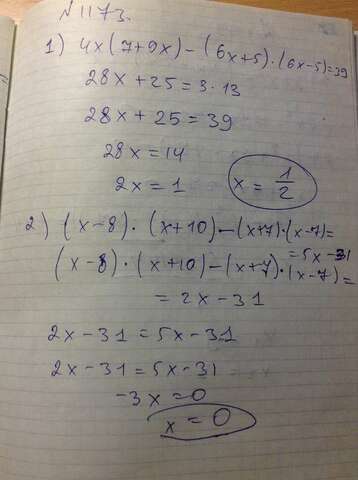 №1173.
1) 4x(7+9x)-(6x+5)·(6x-5)=39
28x+25=3·13
28x+25=39
28x=14
2x=1 x=1/2
2) (x-8)·(x+10)-(x+7)·(x-7)=
=5x-31
(x-8)·(x+10)-(x+7)·(x-7)=
=2x-31
2x-31=5x-31
2x-31=5x-31
-3x=0
x=0